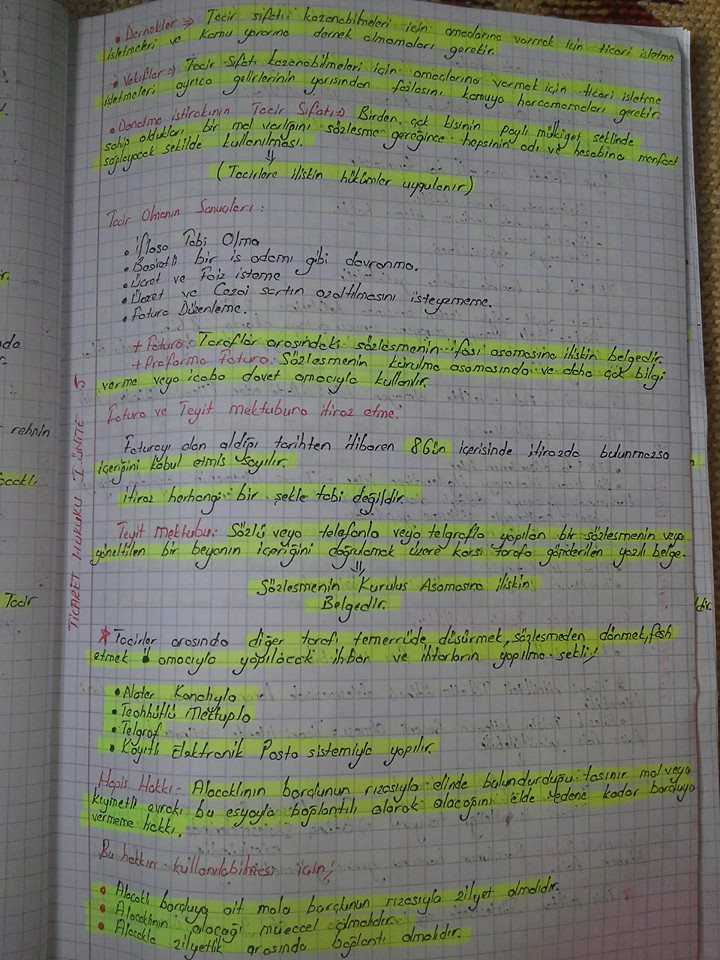 • Dernekler ⇒ Tacir sıfatı kazanabilmeleri için amaçlarına varmak için ticari işletme
işletmeleri ve kamu yararına dernek olmamaları gerekir.
• Vakıflar ⇒ Tacir sıfatı kazanabilmeleri için amaçlarına varmak için ticari işletme
işletmeleri ayrıca gelirlerinin yarısından fazlasını kamuya harcamamaları gerekir.
• Donatma iştirakının Tacir Sıfatı ⇒ Birden çok kişinin paylı mülkiyet şeklinde
sahip oldukları bir mal varlığını sözleşme gereğince hepsinin adı ve hesabına menfaat
sağlayacak şekilde kullanılması.
⇓
(Tacirlere ilişkin hükümler uygulanır)
Tacir Olmanın Sonuçları:
• İflasa Tabi Olma
• Basiretli bir iş adamı gibi davranma.
• Ücret ve Faiz isteme
• Ücret ve Cezai şartın azaltılmasını isteyememe.
• Fatura Düzenleme.
+ Fatura: Taraflar arasındaki sözleşmenin ifası aşamasına ilişkin belgedir.
+ Proforma Fatura: Sözleşmenin kurulma aşamasında ve daha çok bilgi
verme veya icaba davet amacıyla kullanılır.
Fatura ve Teyit mektubuna itiraz etme:
Faturayı alan aldığı tarihten itibaren 8 Gün içerisinde itirazda bulunmazsa
içeriğini kabul etmiş sayılır.
itiraz herhangi bir şekle tabi değildir.
Teyit mektubu: Sözlü veya telefonla veya telgrafla yapılan bir sözleşmenin veya
yöneltilen bir beyanın içeriğini doğrulamak üzere karşı tarafa gönderilen yazılı belge.
⇓
Sözleşmenin Kuruluş Aşamasına ilişkin
Belgedir.
* Tacirler arasında diğer tarafı temerrüde düşürmek, sözleşmeden dönmek, fesh
etmek amacıyla yapılacak ihbar ve ihtarların yapılma şekli!
• Noter Kanalıyla
• Taahhütlü Mektupla
• Telgraf
• Kayıtlı Elektronik Posta sistemiyle yapılır.
Hapis Hakkı - Alacaklının borçlunun rızasıyla elinde bulundurduğu taşınır mal veya
kıymetli evrakı bu eşyayla bağlantılı olarak alacağını elde edene kadar borçluya
vermeme hakkı.
Bu hakkın kullanılabilmesi için!
• Alacaklı borçluya ait mala borçlunun rızasıyla zilyet olmalıdır.
• Alacaklının alacağı müeccel olmalıdır.
• Alacakla zilyetlik arasında bağlantı olmalıdır.
TİCARET HUKUKU I ÜNİTE 5
rehnin
Tacir